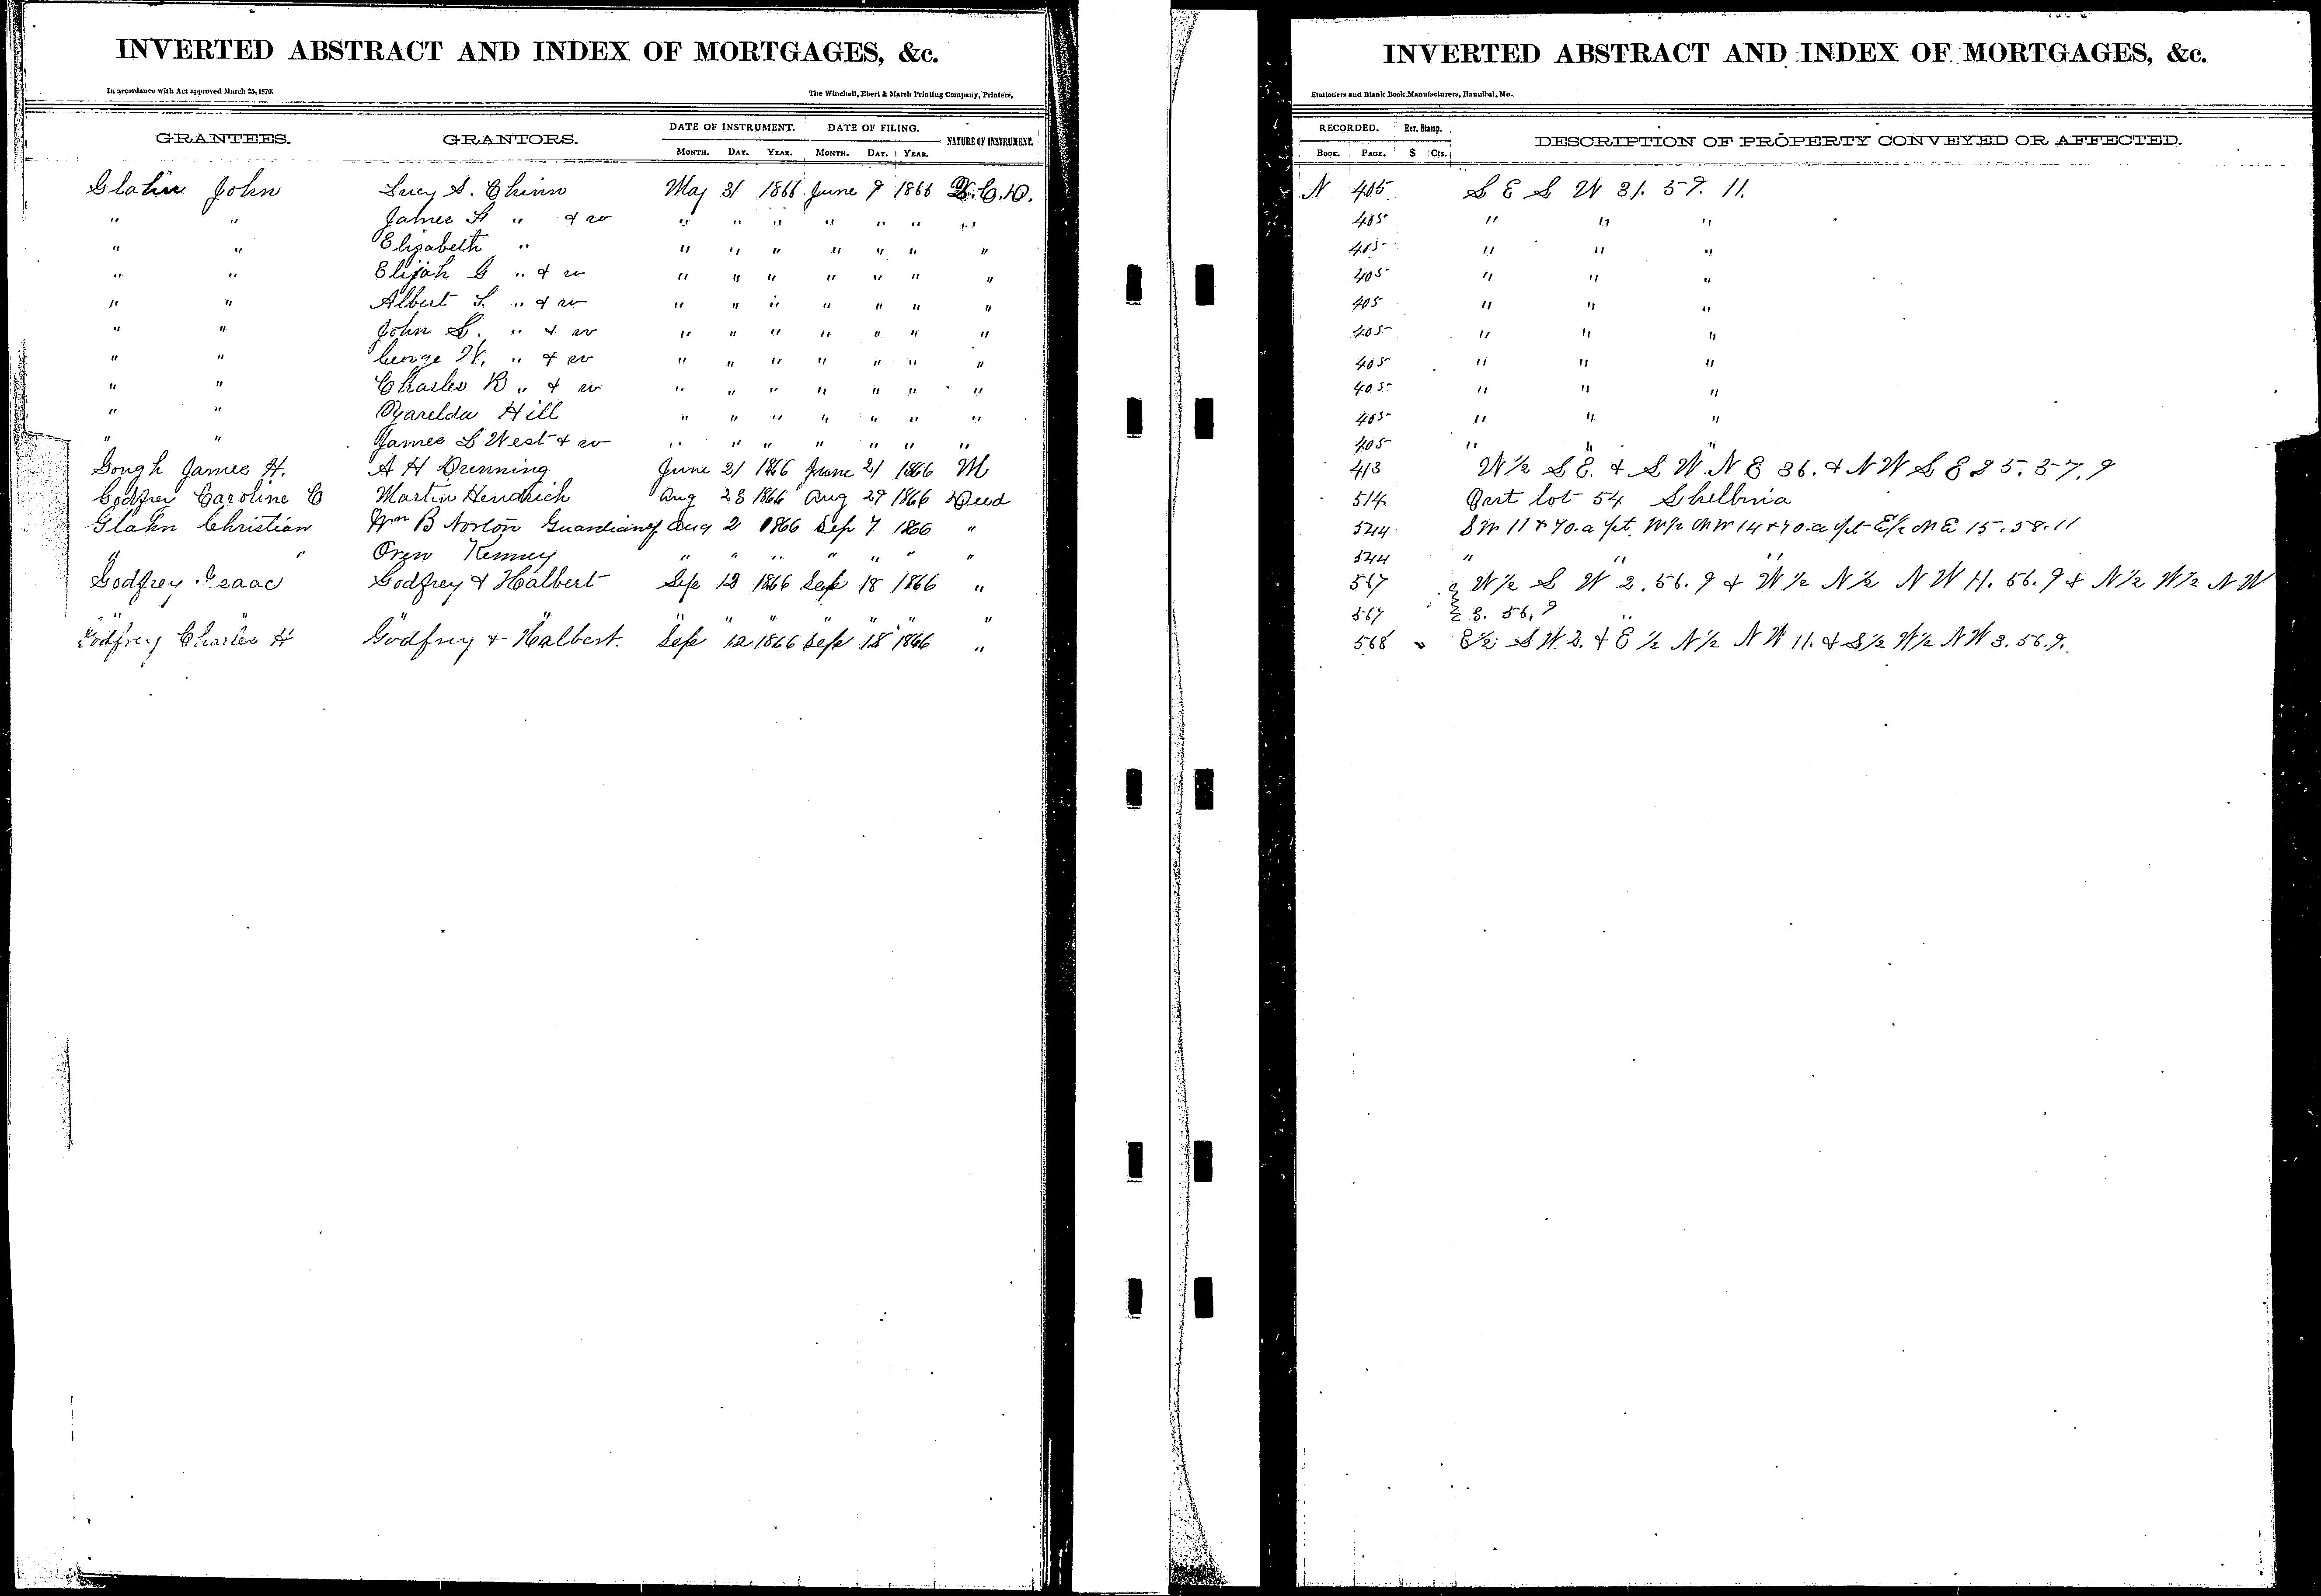 INVERTED ABSTRACT AND INDEX OF MORTGAGES, &c.
In accordance with Act approved March 25, 1870. The Winchell, Ebert & Marsh Printing Company, Printers,
GRANTEES. GRANTORS. DATE OF INSTRUMENT. DATE OF FILING. NATURE OF INSTRUMENT.
MONTH. DAY. YEAR. MONTH. DAY. YEAR.
Glahn John Lucy S. Chinn May 31 1866 June 9 1866 Q.C.D.
" " James " & w " " " " " " "
" " Elizabeth " " " " " " " "
" " Elijah G " & w " " " " " " "
" " Albert S. " & w " " " " " " "
" " John S. " & w " " " " " " "
" " George W. " & w " " " " " " "
" " Charles B " & w " " " " " " "
" " Zarelda Hill " " " " " " "
" " James S West & w " " " " " " "
Gough James H. A H Drenning June 21 1866 June 21 1866 M
Godfrey Caroline C Martin Hendrich Aug 23 1866 Aug 29 1866 Deed
Glahn Christian Wm B Norton Guardian of Aug 2 1866 Sep 7 1866 "
" " Oren Kenney " " " " " " "
Godfrey Isaac Godfrey & Halbert Sep 12 1866 Sep 18 1866 "
" " " " " " " " "
Godfrey Charles H Godfrey & Halbert. Sep 12 1866 Sep 18 1866 "
INVERTED ABSTRACT AND INDEX OF MORTGAGES, &c.
Stationers and Blank Book Manufacturers, Hannibal, Mo.
RECORDED. Rev. Stamp. DESCRIPTION OF PROPERTY CONVEYED OR AFFECTED.
BOOK. PAGE. $ Cts.
N 405 S E S W 31. 59. 11.
405 " " "
405 " " "
405 " " "
405 " " "
405 " " "
405 " " "
405 " " "
405 " " "
405 " " "
413 W½ S E. & S W N E 36. & N W S E 25. 57. 9
514 Part lot 54 Shelbina
544 S W 11 & 70.a pt. W½ N W 14 & 70.a pt E½ N E 15. 58. 11
544 " " "
567 W½ S W 2. 56. 9 & W½ N½ N W 11. 56. 9 & N½ W½ N W
567 3. 56. 9 "
568 E½ S W. 2. & E ½ N½ N W 11. & S½ W½ N W 3. 56. 9.